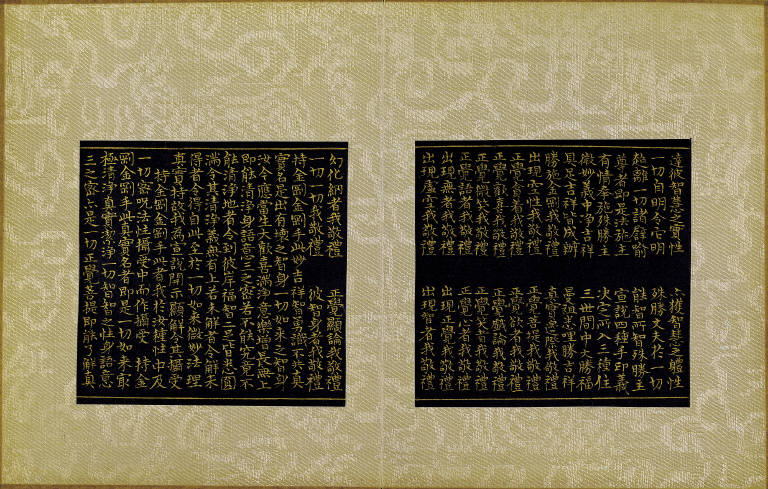 達彼智慧之實性 六種智慧之體性
一切自明令它明 殊勝丈夫於一切
能離一切諸譬喻 能智所智殊勝主
尊者即是法施主 宣說四種手印義
有情奉施殊勝主 決定所入三種住
微妙義中淨吉祥 三世間中大勝福
具足吉祥皆成辦 曼殊悉哩勝吉祥
勝施金剛我敬禮 真實邊際我敬禮
出現空性我敬禮 正覺菩提我敬禮
正覺貪著我敬禮 正覺欲者我敬禮
正覺歡喜我敬禮 正覺戲論我敬禮
正覺微笑我敬禮 正覺笑者我敬禮
正覺語者我敬禮 正覺心者我敬禮
出現無者我敬禮 出現正覺我敬禮
出現虛空我敬禮 出現智者我敬禮
幻化網者我敬禮 正覺顯論我敬禮
一切一切我敬禮 彼智身者我敬禮
持金剛金剛手此妙吉祥智勇識不共真
實名是出有壞之智身一切如來之智身
汝今應當生大歡喜滿淨意樂增長無上
即能清淨身語意三之密若不能究竟不
能清淨地者令到彼岸福智二足皆悉圓
滿令其清淨義無有上若未解者令解未
得者令得自此至於一切如來微妙法理
真實持故我為宣說開示顯解令其攝受
持金剛金剛手此者我於汝種性中及
一切密呪法性攝受中而作攝受 持金
剛金剛手此真實名者即是一切如來最
極清淨真實潔淨一切智智之性身語意
三之密亦是一切正覺菩提即能了解真